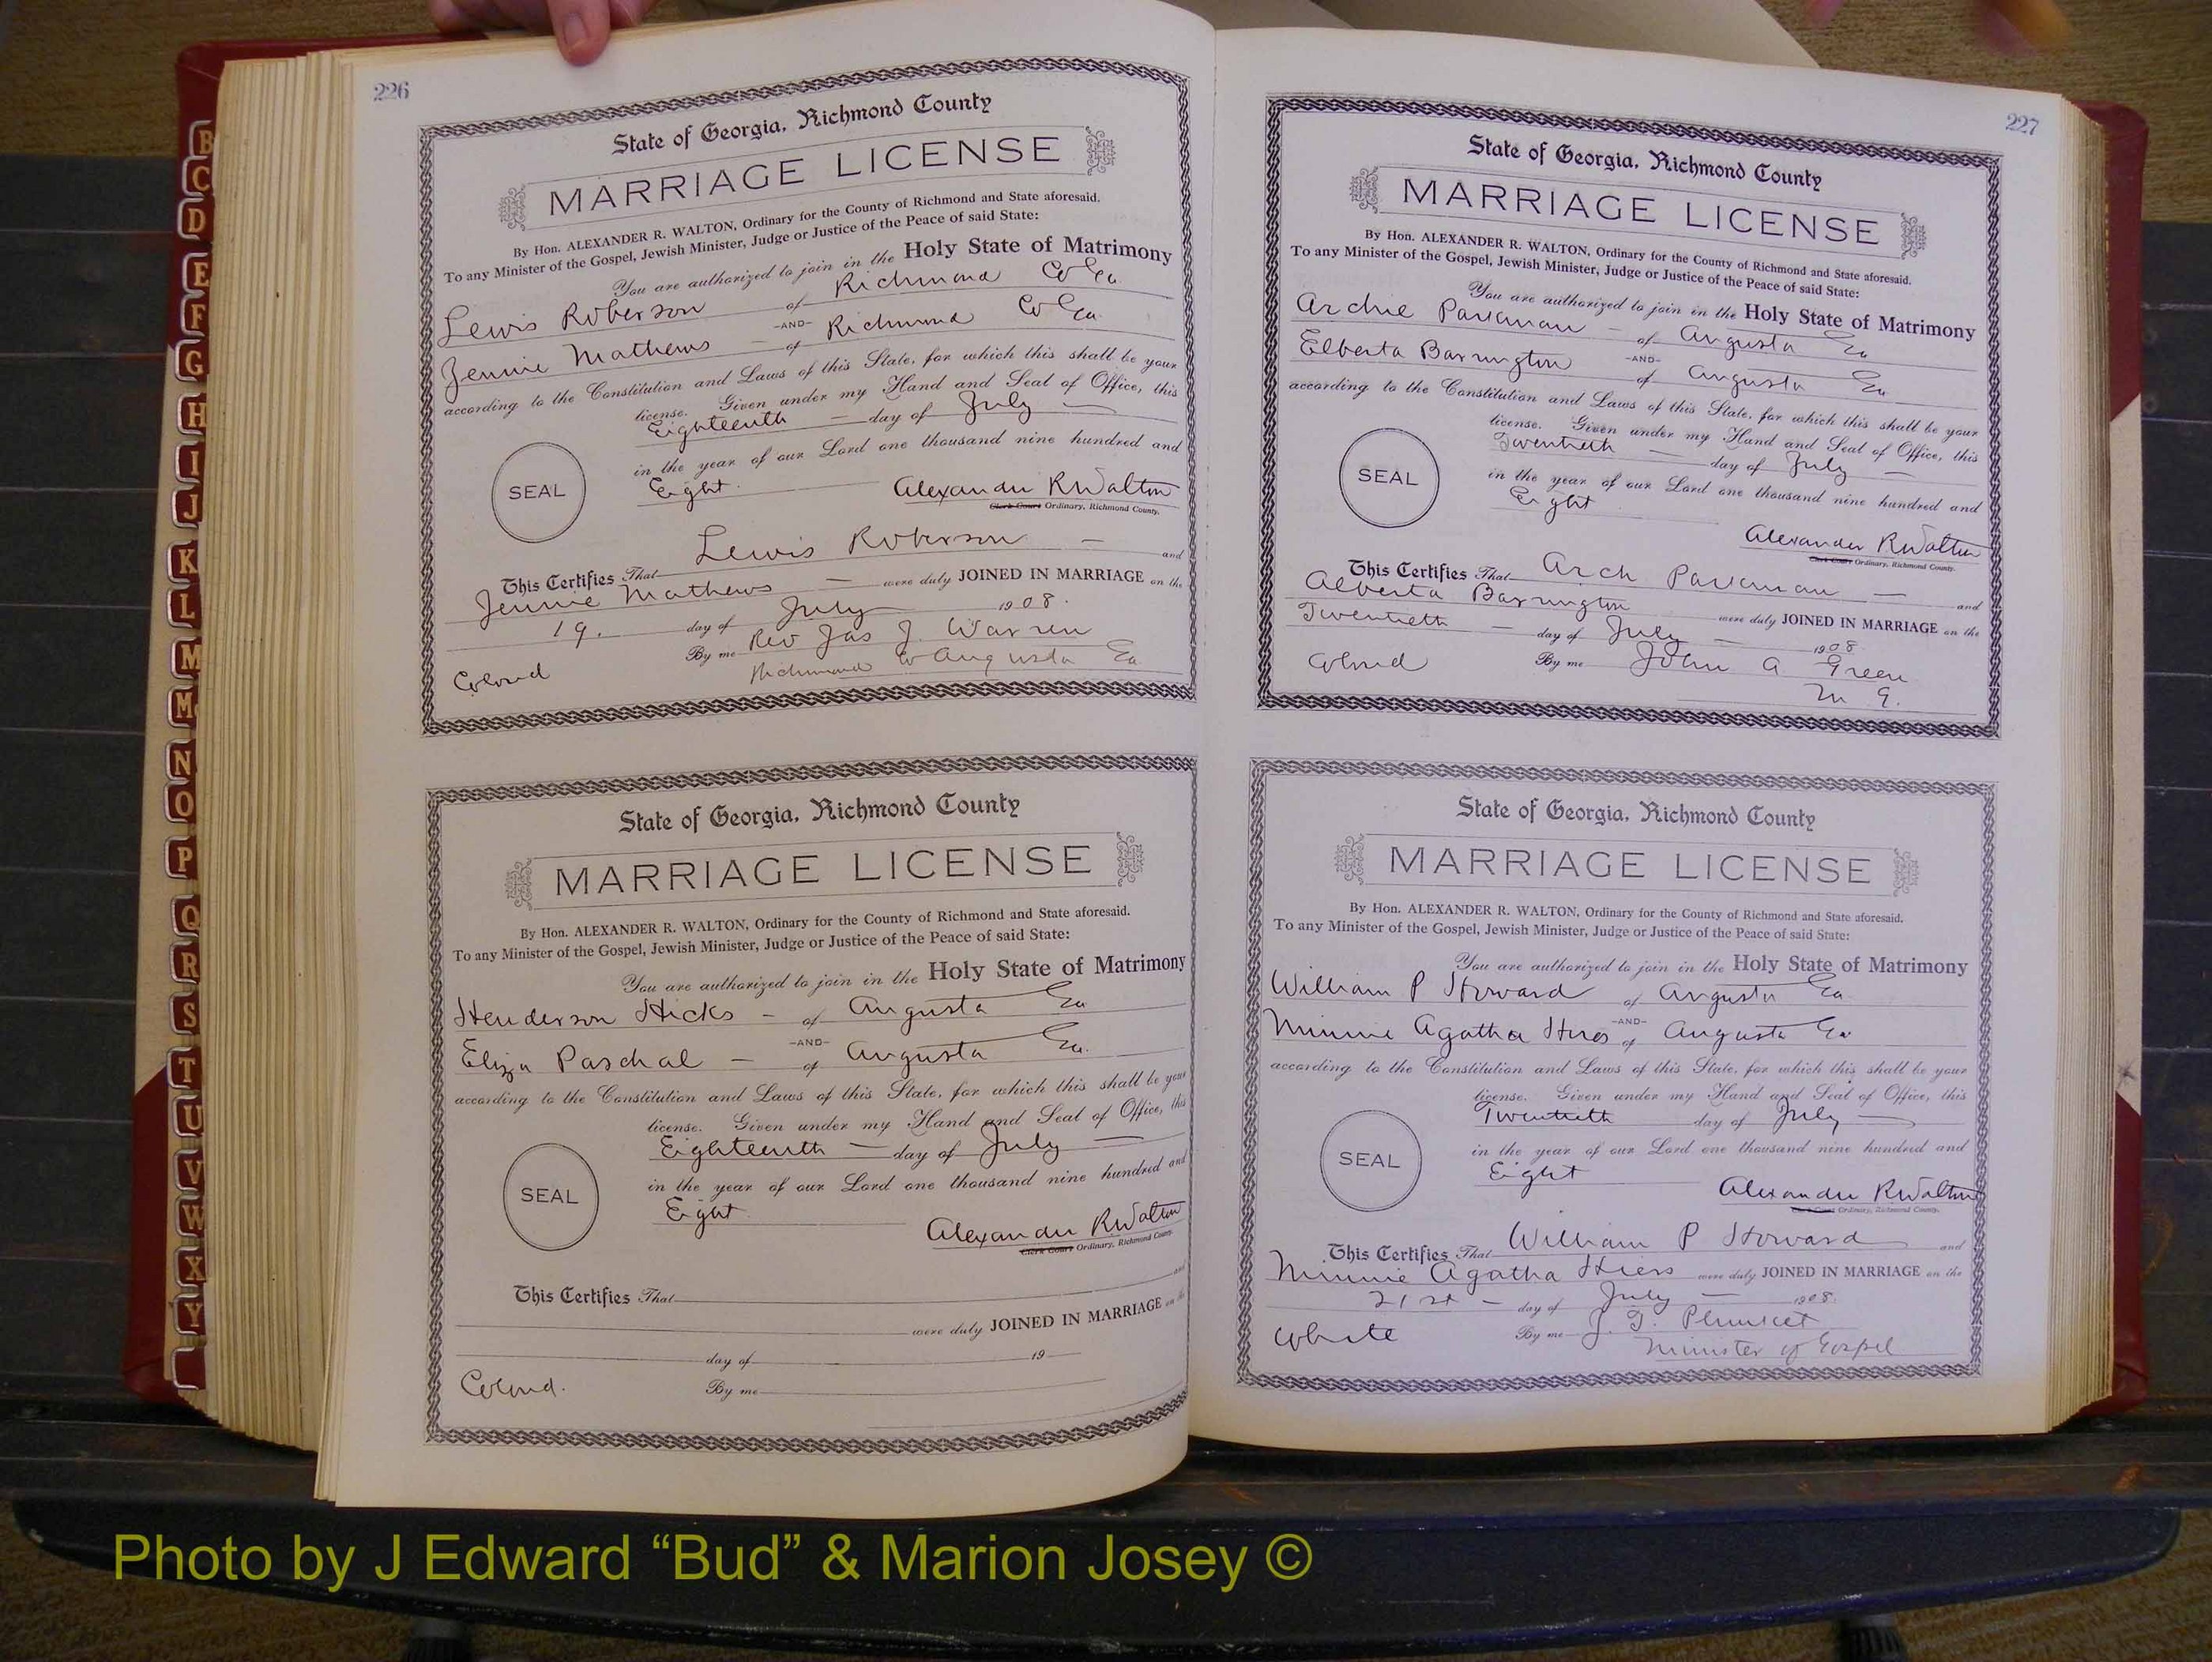 226
State of Georgia, Richmond County
MARRIAGE LICENSE
By Hon. ALEXANDER R. WALTON, Ordinary for the County of Richmond and State aforesaid.
To any Minister of the Gospel, Jewish Minister, Judge or Justice of the Peace of said State:
You are authorized to join in the Holy State of Matrimony
Lewis Roberson of Richmond Co Ga.
-AND-
Jennie Mathews of Richmond Co Ga
according to the Constitution and Laws of this State, for which this shall be your
license. Given under my Hand and Seal of Office, this
Eighteenth day of July
in the year of our Lord one thousand nine hundred and
SEAL
Eight. Alexander R Walton
Clerk Court Ordinary, Richmond County.
This Certifies That Lewis Roberson and
Jennie Mathews were duly JOINED IN MARRIAGE on the
19. day of July 1908.
By me Rev Jas J. Warren
Colored Richmond Co Augusta Ga
State of Georgia, Richmond County
MARRIAGE LICENSE
By Hon. ALEXANDER R. WALTON, Ordinary for the County of Richmond and State aforesaid.
To any Minister of the Gospel, Jewish Minister, Judge or Justice of the Peace of said State:
You are authorized to join in the Holy State of Matrimony
Henderson Hicks - of Augusta Ga
-AND-
Eliza Paschal - of Augusta Ga.
according to the Constitution and Laws of this State, for which this shall be your
license. Given under my Hand and Seal of Office, this
Eighteenth day of July
in the year of our Lord one thousand nine hundred and
SEAL
Eight. Alexander R Walton
Clerk Court Ordinary, Richmond County.
This Certifies That and
were duly JOINED IN MARRIAGE on the
day of 19
Colored. By me
227
State of Georgia, Richmond County
MARRIAGE LICENSE
By Hon. ALEXANDER R. WALTON, Ordinary for the County of Richmond and State aforesaid.
To any Minister of the Gospel, Jewish Minister, Judge or Justice of the Peace of said State:
You are authorized to join in the Holy State of Matrimony
Archie Parkman - of Augusta Ga
-AND-
Elberta Barrington of Augusta Ga
according to the Constitution and Laws of this State, for which this shall be your
license. Given under my Hand and Seal of Office, this
Twentieth day of July
in the year of our Lord one thousand nine hundred and
SEAL
Eight
Alexander R Walton
Clerk Court Ordinary, Richmond County.
This Certifies That Arch Parkman and
Alberta Barrington were duly JOINED IN MARRIAGE on the
Twentieth - day of July 1908
Colored By me John A Green
M G.
State of Georgia, Richmond County
MARRIAGE LICENSE
By Hon. ALEXANDER R. WALTON, Ordinary for the County of Richmond and State aforesaid.
To any Minister of the Gospel, Jewish Minister, Judge or Justice of the Peace of said State:
You are authorized to join in the Holy State of Matrimony
William P Howard of Augusta Ga
-AND-
Minnie Agatha Hiers of Augusta Ga
according to the Constitution and Laws of this State, for which this shall be your
license. Given under my Hand and Seal of Office, this
Twentieth day of July
in the year of our Lord one thousand nine hundred and
SEAL
Eight
Alexander R Walton
Clerk Court Ordinary, Richmond County.
This Certifies That William P Howard and
Minnie Agatha Hiers were duly JOINED IN MARRIAGE on the
21st - day of July 1908.
White By me J. T. Plunket
Minister of Gospel
B
C
D
E
F
G
H
I
J
K
L
M
Mc
N
O
P
Q
R
S
T
U
V
W
X
Y
Photo by J Edward “Bud” & Marion Josey ©